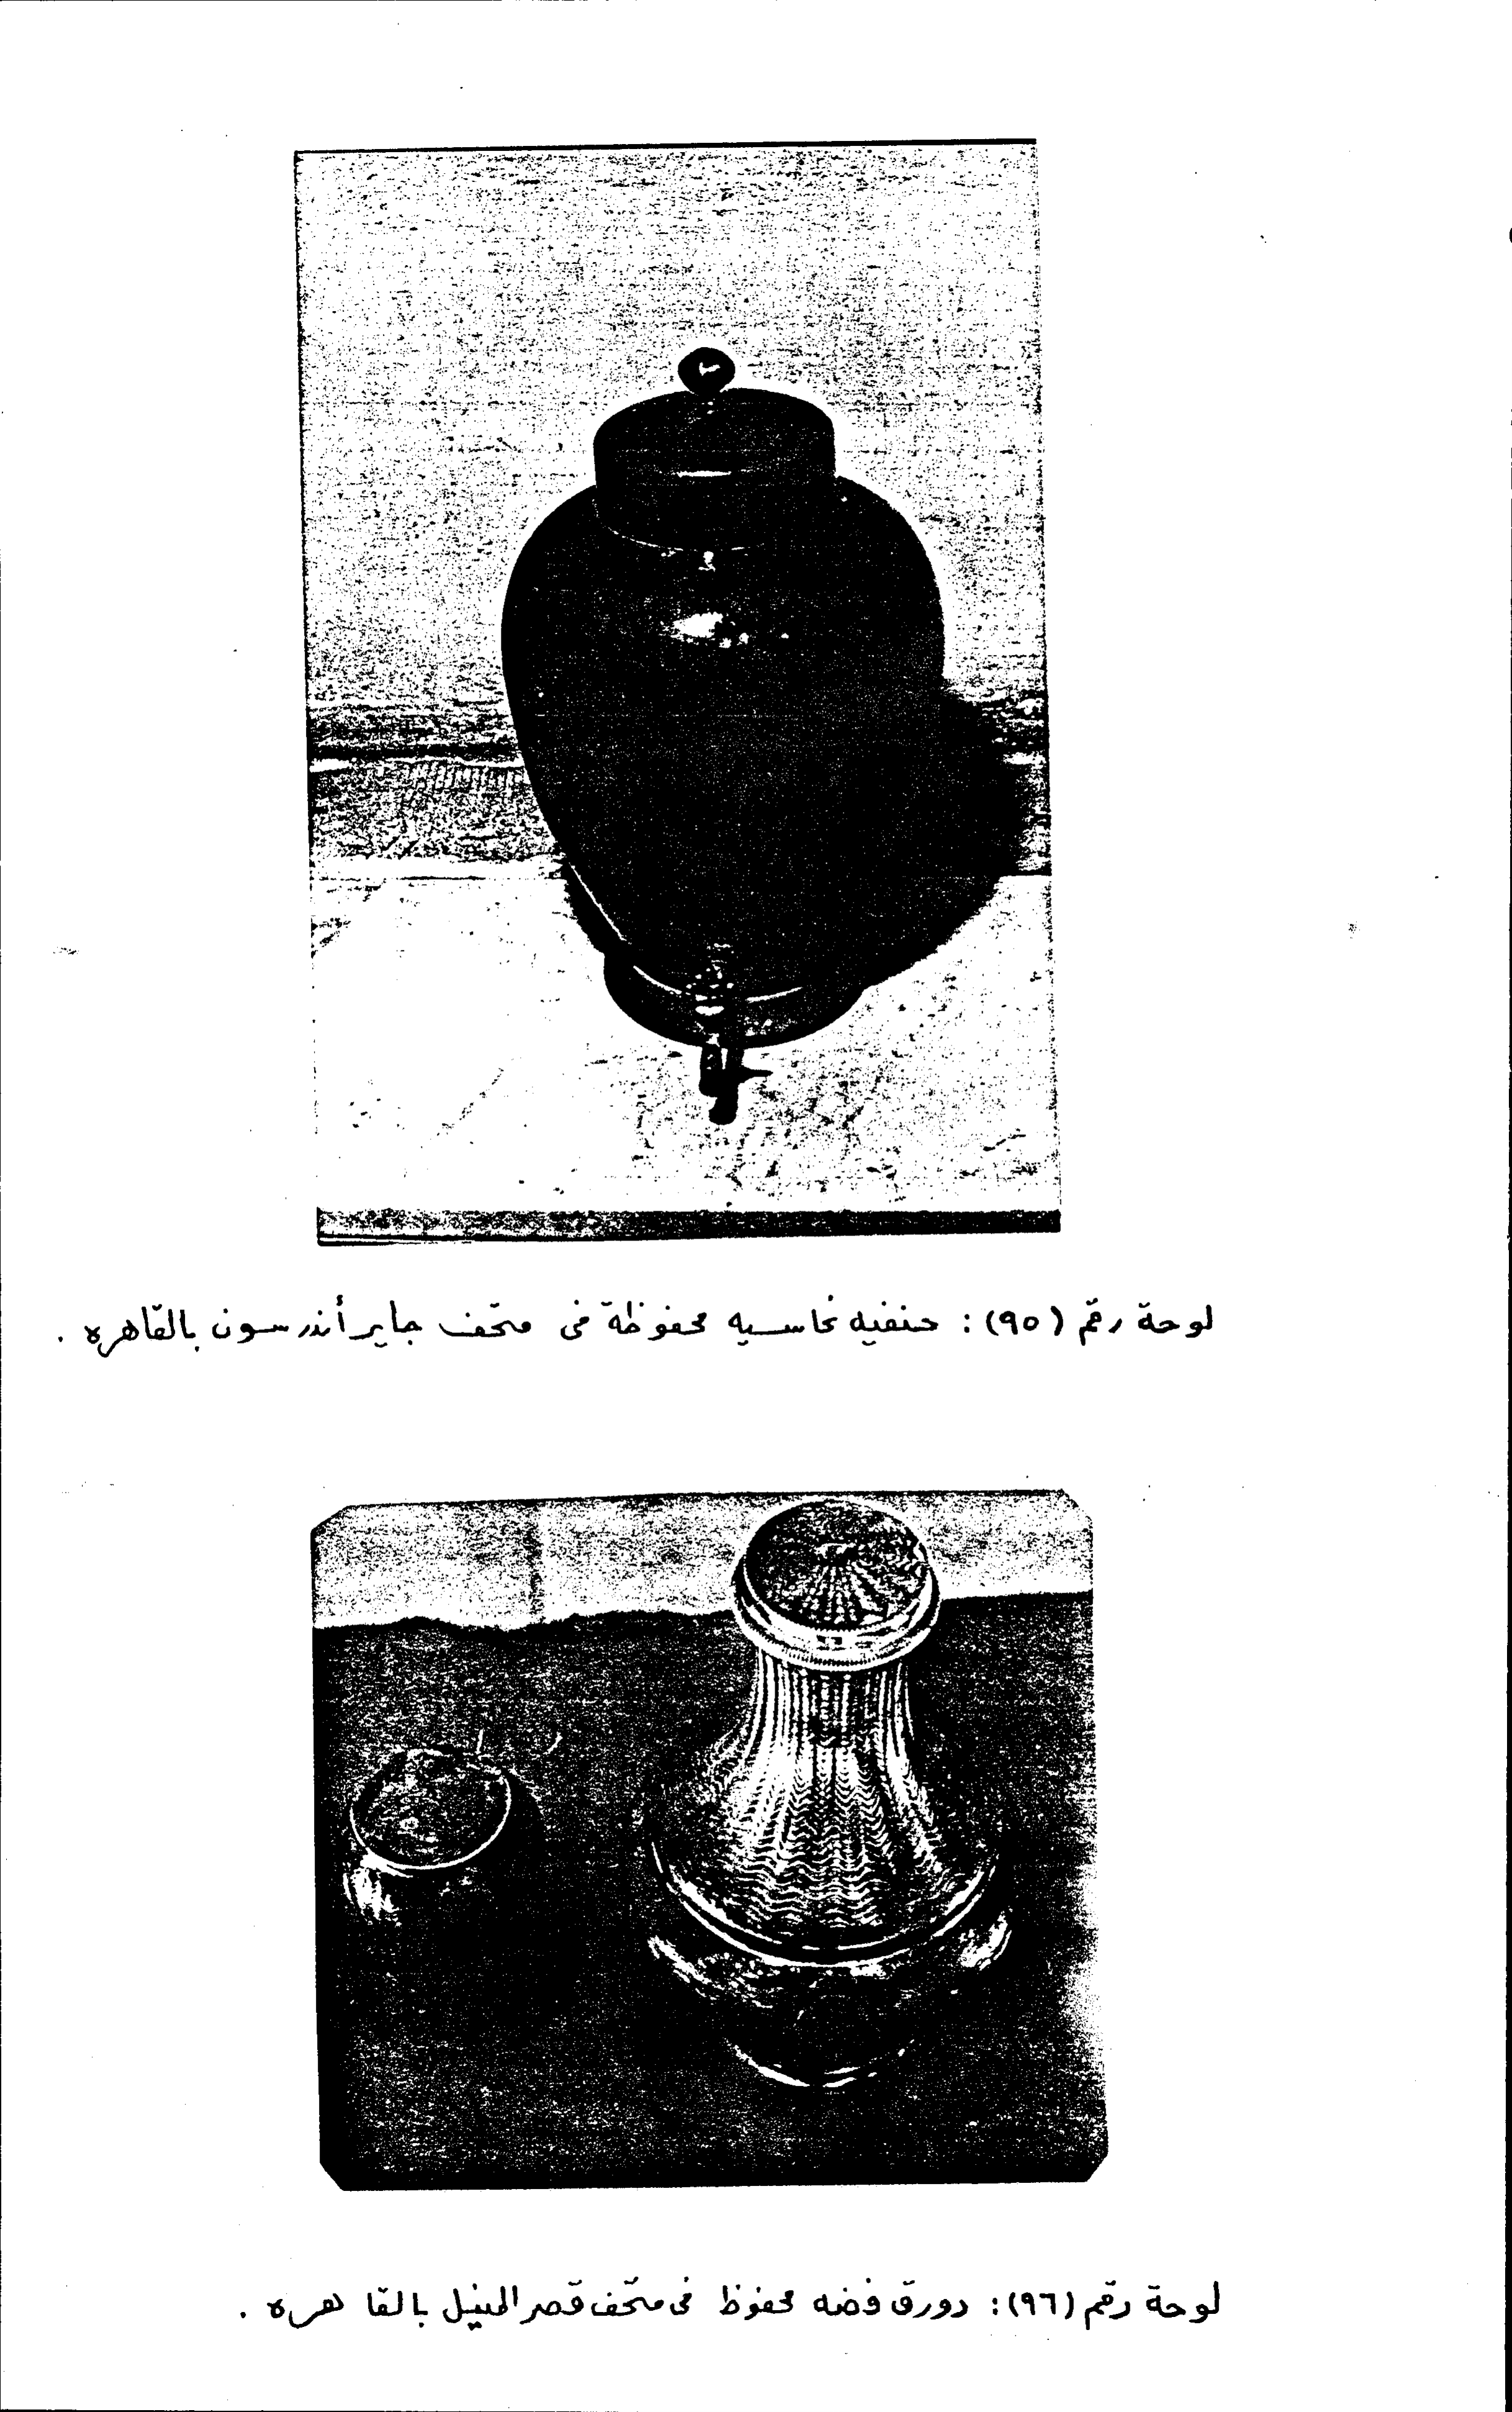 لوحة رقم (٩٥): حنفيه نحاسيه محفوظة فى متحف جاير أندرسون بالقاهره .
لوحة رقم (٩٦): دورق فضه محفوظ فى متحف قصر المنيل بالقاهره .